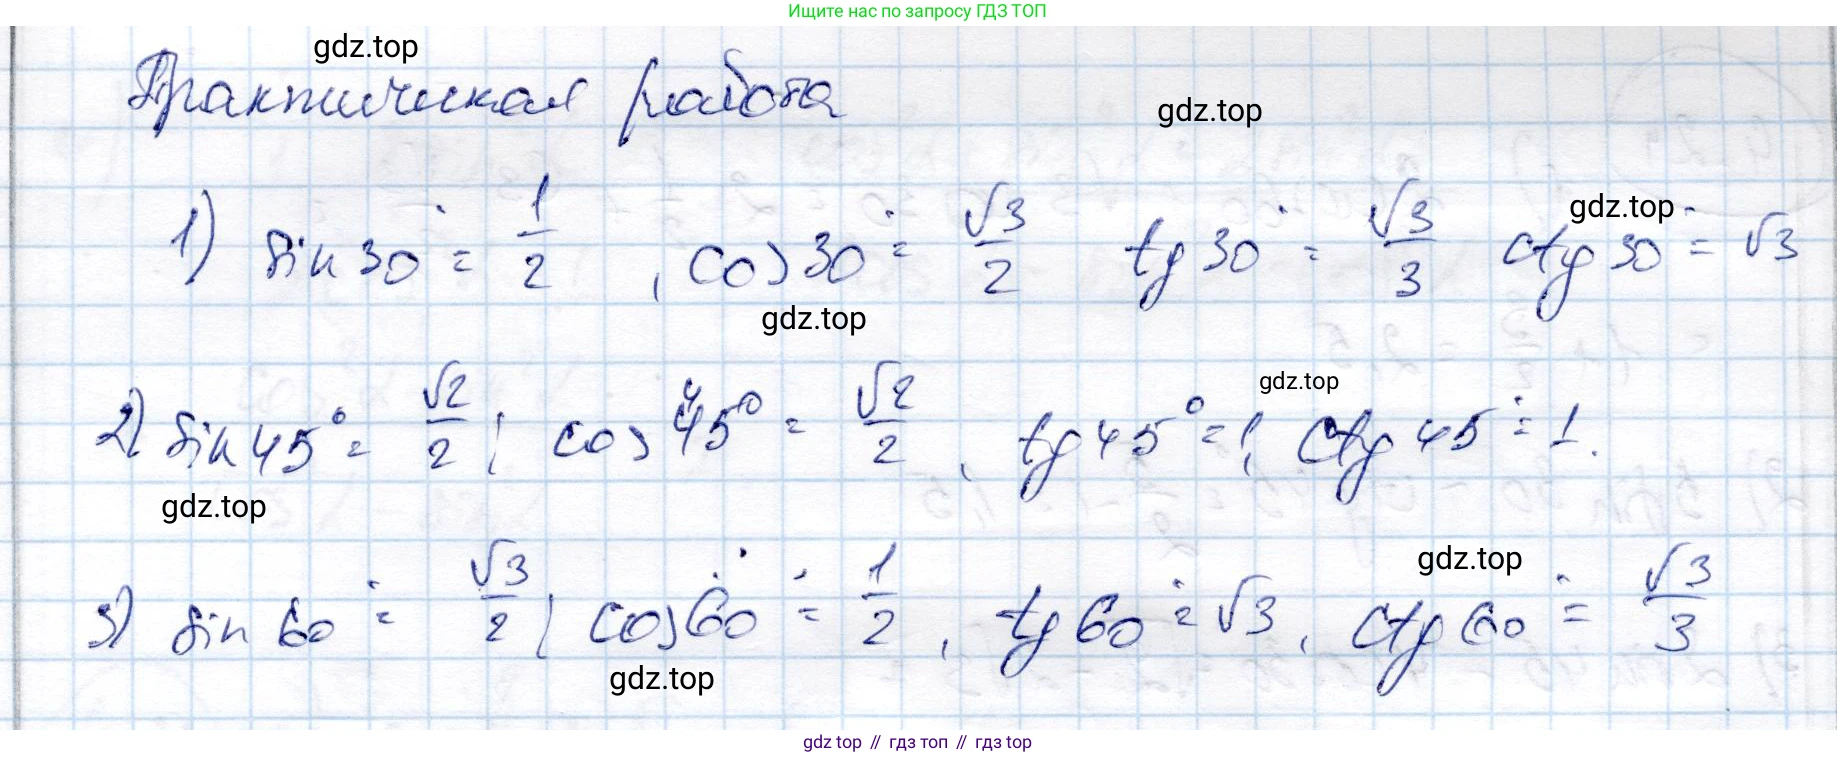 Ищите нас по запросу ГДЗ ТОП
gdz.top
Практическая работа
gdz.top
1) sin 30° = 1/2 , cos 30° = √3/2 tg 30° = √3/3 ctg 30° = √3
gdz.top
gdz.top
gdz.top
2) sin 45° = √2/2 , cos 45° = √2/2 , tg 45° = 1, ctg 45° = 1.
gdz.top
gdz.top
3) sin 60° = √3/2 , cos 60° = 1/2 , tg 60° = √3 , ctg 60° = √3/3
gdz.top
gdz top // гдз топ // гдз top